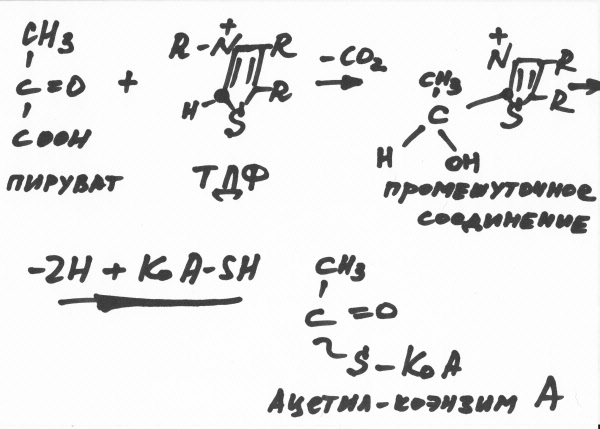 CH3
C=O
COOH
ПИРУВАТ
+
R-N+
R
R
H
S
ТДФ
-CO2
CH3
C
H
OH
N+
R
R
S
ПРОМЕЖУТОЧНОЕ
СОЕДИНЕНИЕ
-2H + КоА-SH
CH3
C=O
~S-КоА
АЦЕТИЛ-КОЭНЗИМ А